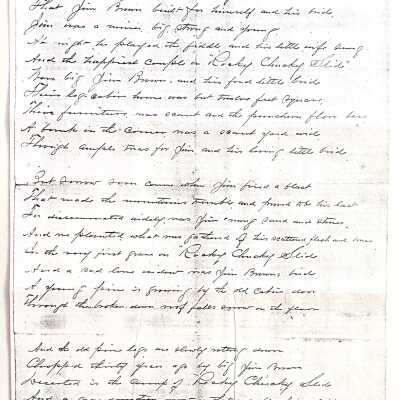 That Jim Brown built for himself and his bride.
Jim was a miner big strong and young
At night he played the fiddle, and his little wife sung
And the happiest couple on "Rocky Chucky Slide"
Were big Jim Brown, and his fond little bride
Their log cabin home was but twelve feet square,
Their furniture, was scant and the puncheon floor bare
A bunk in the corner was a scant yard wide
Though ample twas for Jim and his loving little bride
But sorrow soon came when Jim fired a blast
That made the mountains tremble and proved to be his last
For disseminated widely was Jim 'mong sand and stones,
And we planted what was gathered of his scattered flesh and bones
in the very first grave on "Rocky Chucky Slide
And a sad lone widow was Jim Browns bride
A young pine is growing by the old cabin door
Through the broken down roof falls snow on the floor
And the old pine logs are slowly rotting down
Chopped thirty years ago by big Jim Brown
Deserted is the camp of "Rocky Chucky Slide
And a